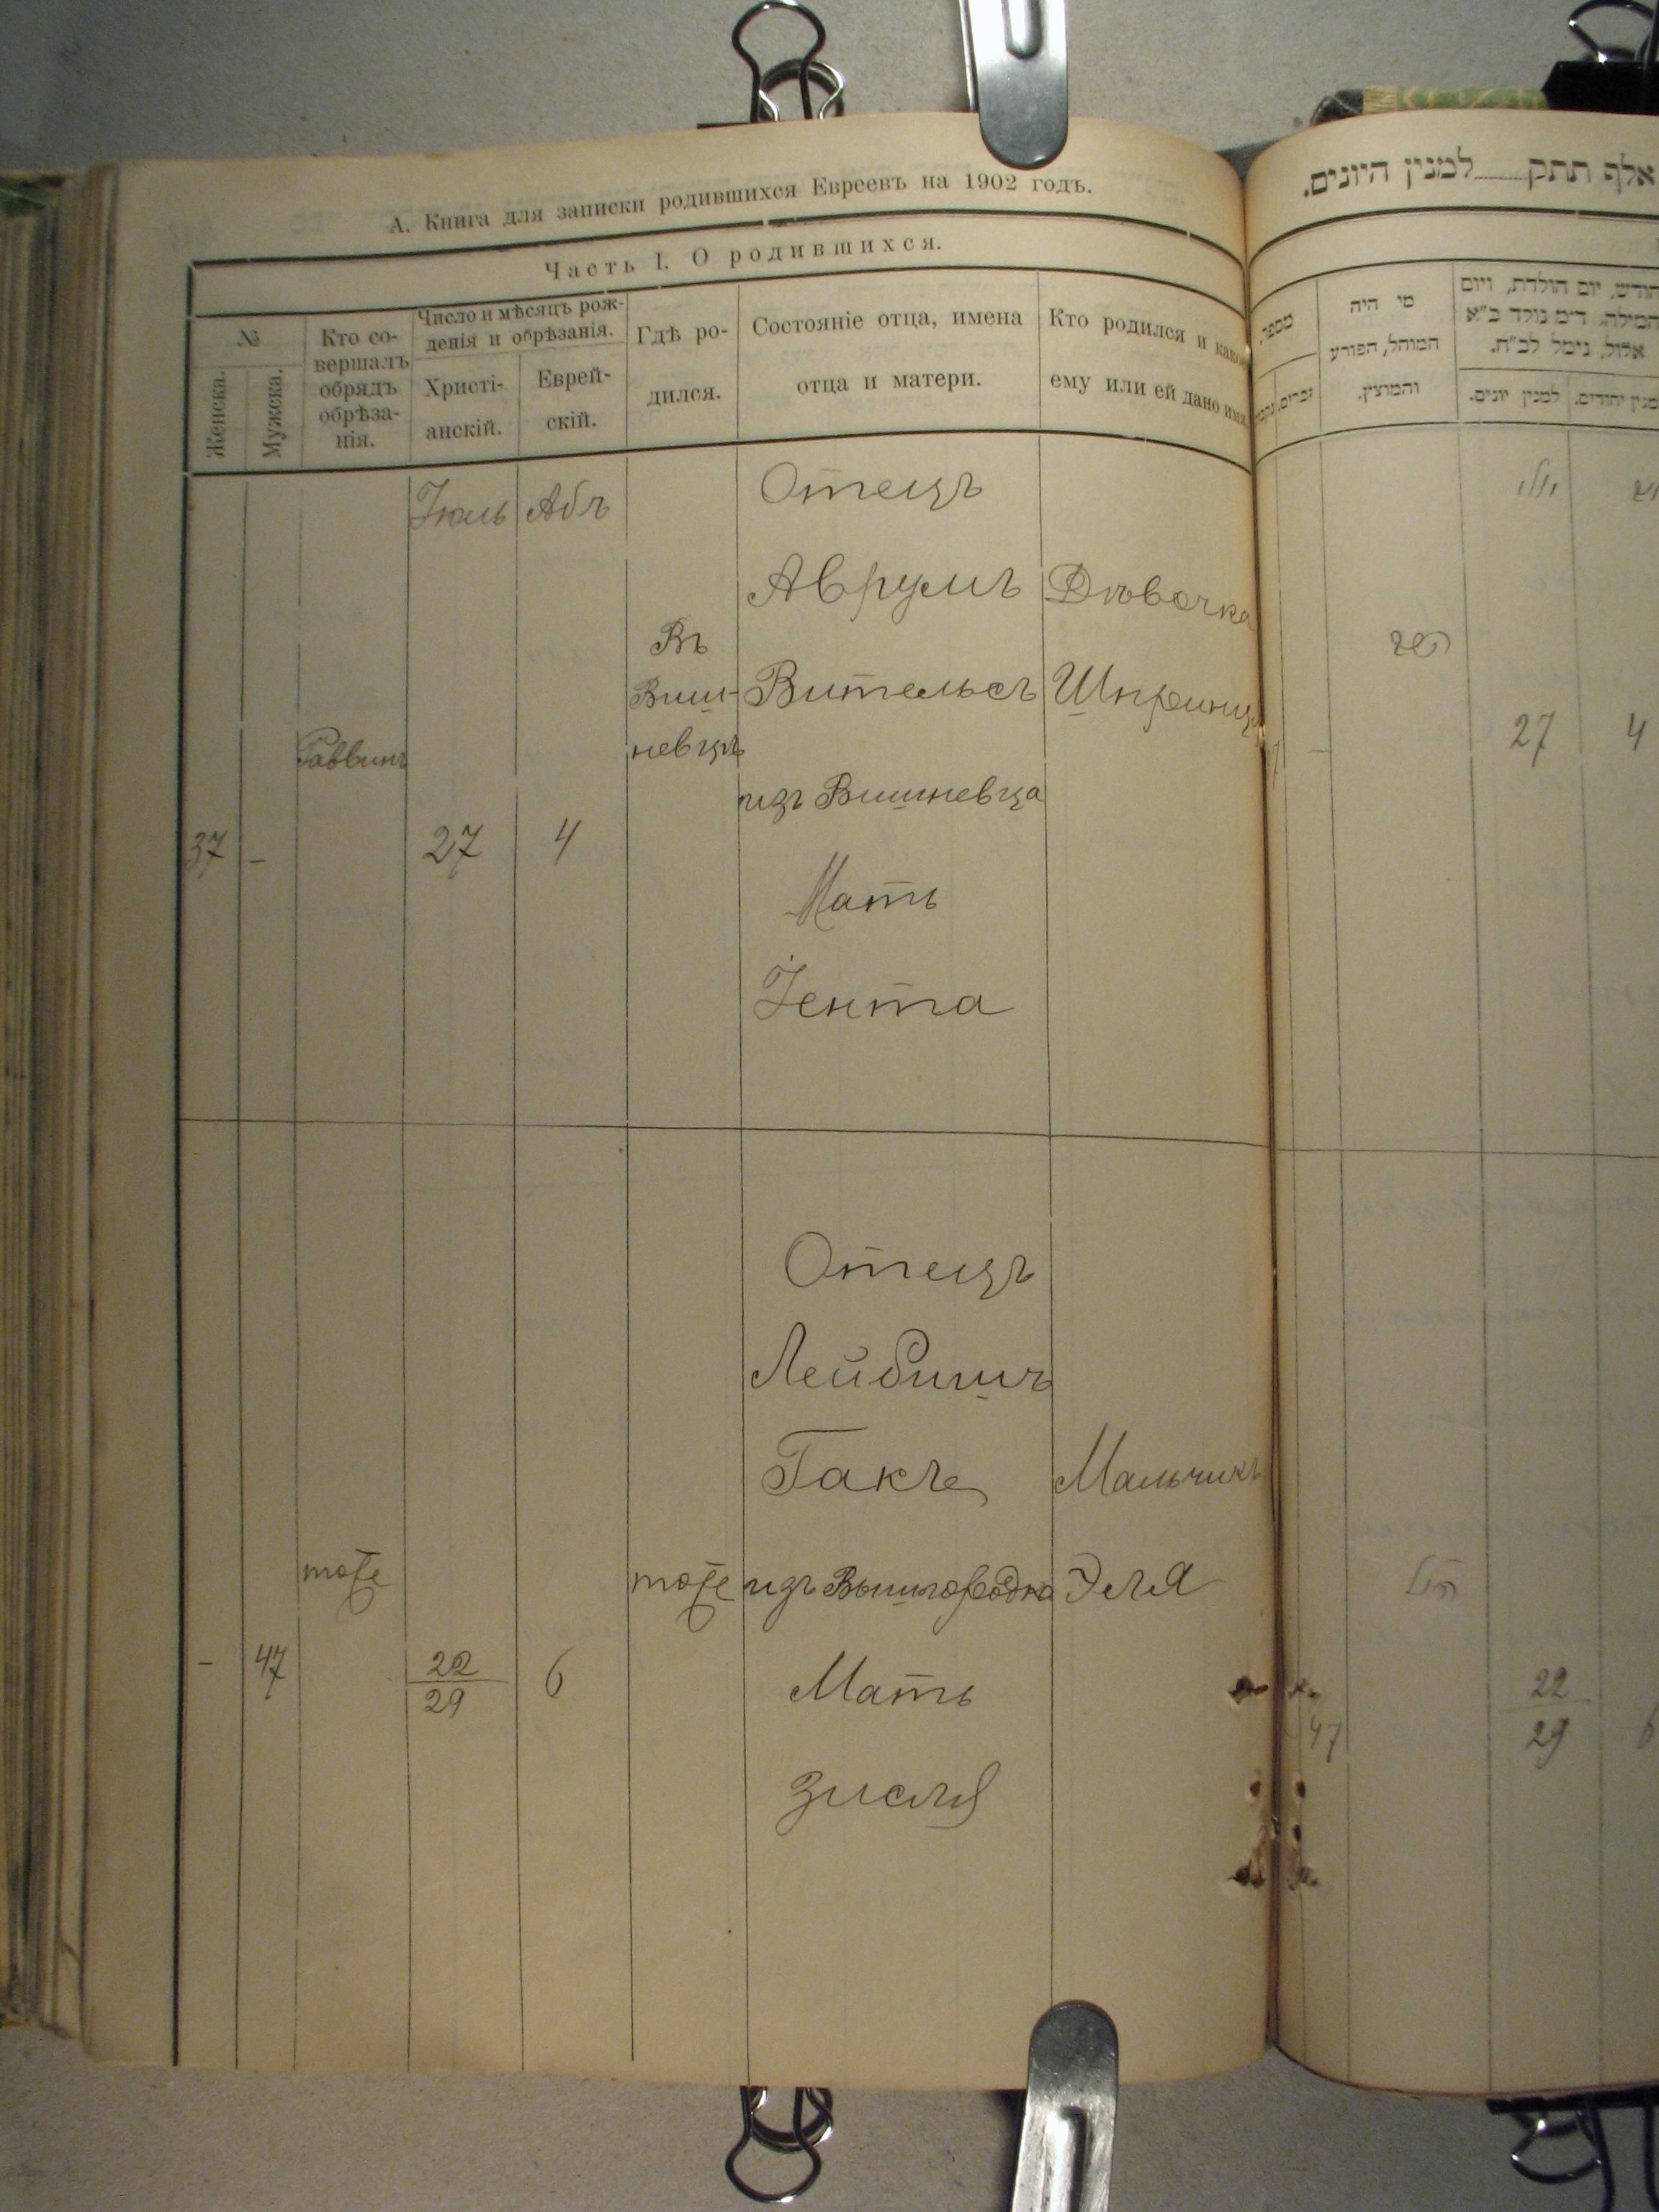 А. Книга для записки родившихся Евреевъ на 1902 годъ.
Часть I. О родившихся.
№
Женска.
Мужска.
Кто со-
вершалъ
обрядъ
обрѣза-
нія.
Число и мѣсяцъ рож-
денія и обрѣзанія.
Христі-
анскій.
Еврей-
скій.
Гдѣ ро-
дился.
Состояніе отца, имена
отца и матери.
Кто родился и какое
ему или ей дано имя.
Іюль Абъ
Отецъ
Аврумъ Дѣвочка
Въ
Виш-
невцѣ
Вительсъ
Раввинъ
изъ Вишневца
37 – 27 4
Мать
Іента
Отецъ
Лейбишъ
Гакъ Мальчикъ
тоже тоже изъ Вышгородка Эля
– 47 22 6
29
Мать
Зисля
אלף תתק למנין היונים.
מספר
זכרים.
מי היה
המוהל, הפורע
והמוצץ.
חודש, יום הולדת, ויום
המילה. ד״מ נולד כ״א
אלול, נימל לב״ח.
למנין יונים.
למנין יהודים.
27 4
22
29
47